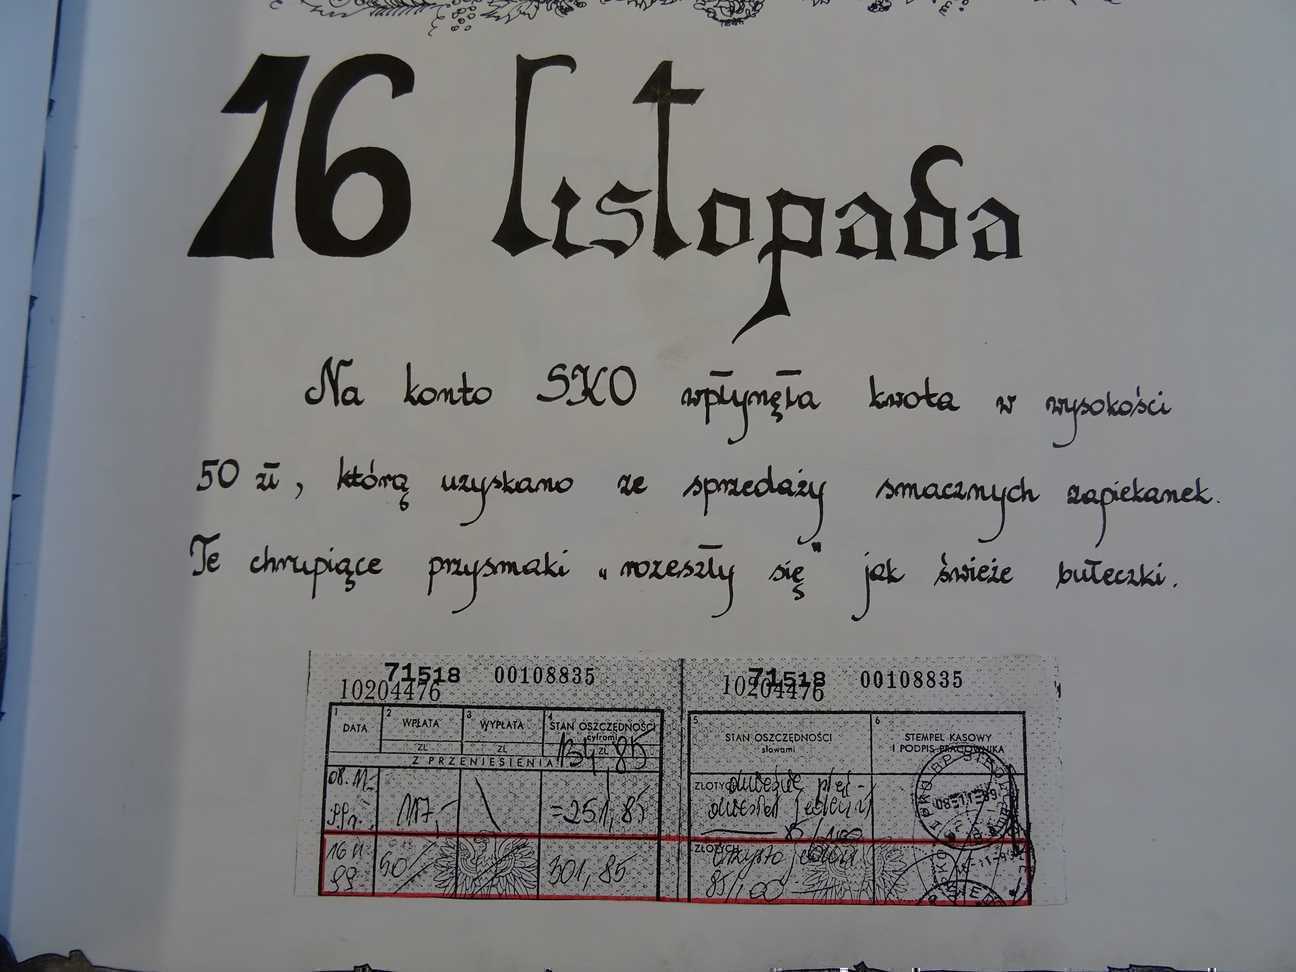 16 listopada
Na konto SKO wpłynęła kwota w wysokości
50 zł, którą uzyskano ze sprzedaży smacznych zapiekanek.
Te chrupiące przysmaki „rozeszły się" jak świeże bułeczki.
71518 00108835
10204476
71518 00108835
10204476
1 DATA
2 WPŁATA
ZŁ
3 WYPŁATA
ZŁ
4 STAN OSZCZĘDNOŚCI
cyframi
ZŁ
Z PRZENIESIENIA 134,85
08.11.
99r. 117,- =251,85
16 11
99 50 301,85
5 STAN OSZCZĘDNOŚCI
słowami
6 STEMPEL KASOWY
I PODPIS PRACOWNIKA
ZŁOTYCH dwieście pięć-
dziesiąt jeden
85/100
ZŁOTYCH trzysta jeden
85/100